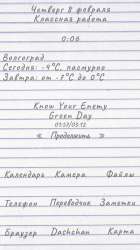 Четверг 8 февраля
Классная работа
0:06
Волгоград
Сегодня: -4°C, пасмурно
Завтра: от -7°C до 0°C
Know Your Enemy
Green Day
« Продолжить »
Календарь Камера Файлы
Телефон Переводчик Заметки
Браузер Dashchan Карта